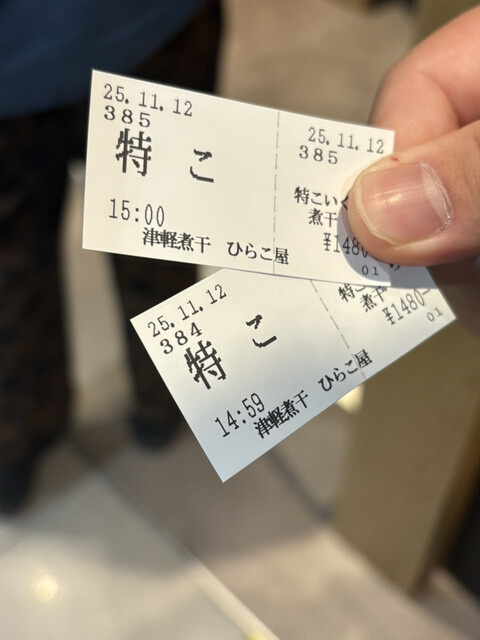 25.11.12
385
特 こ
15:00
津軽煮干 ひらこ屋
25.11.12
385
特こいく
煮干
¥1480
01
25.11.12
384
特 こ
14:59
津軽煮干 ひらこ屋
特こ
煮干
¥1480-
01